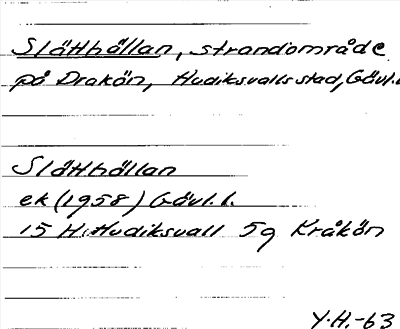 Slätthällan, strandområde
på Drakön, Hudiksvalls stad, Gävl.l.
Slätthällan
ek (1958) Gävl. l.
15 H. Hudiksvall 5g Kråkön
Y.H.-63